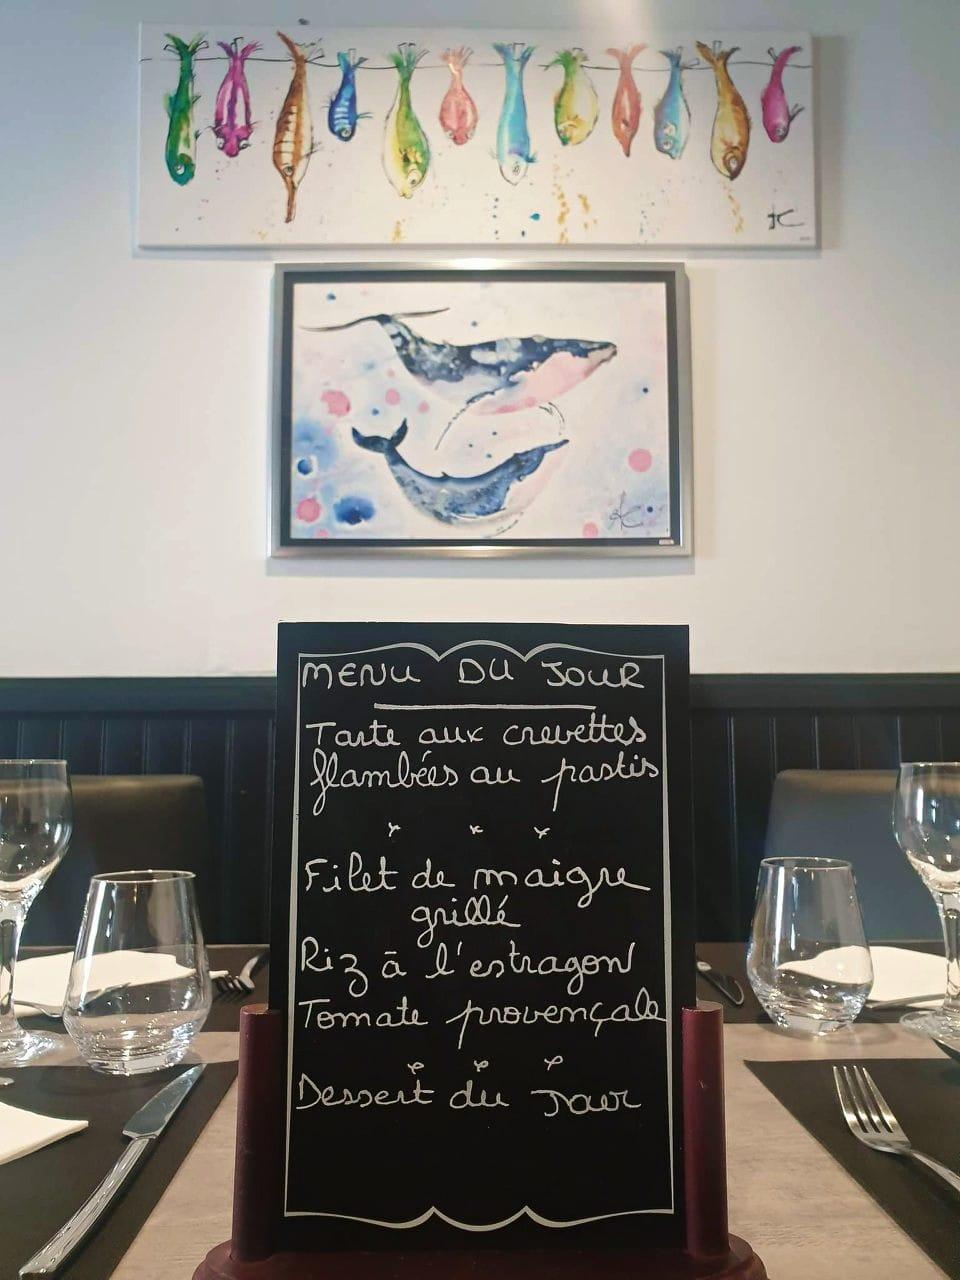 MENU DU JOUR
Tarte aux crevettes
flambées au pastis
Filet de maigre
grillé
Riz à l'estragon
Tomate provençale
Dessert du Jour